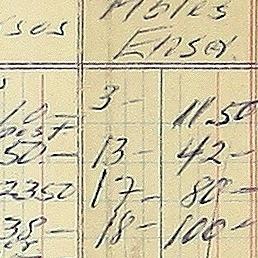 Moles
Ensa.
10- 3- 11.50
50- 13- 42-
2350 17- 80-
38- 18- 100-